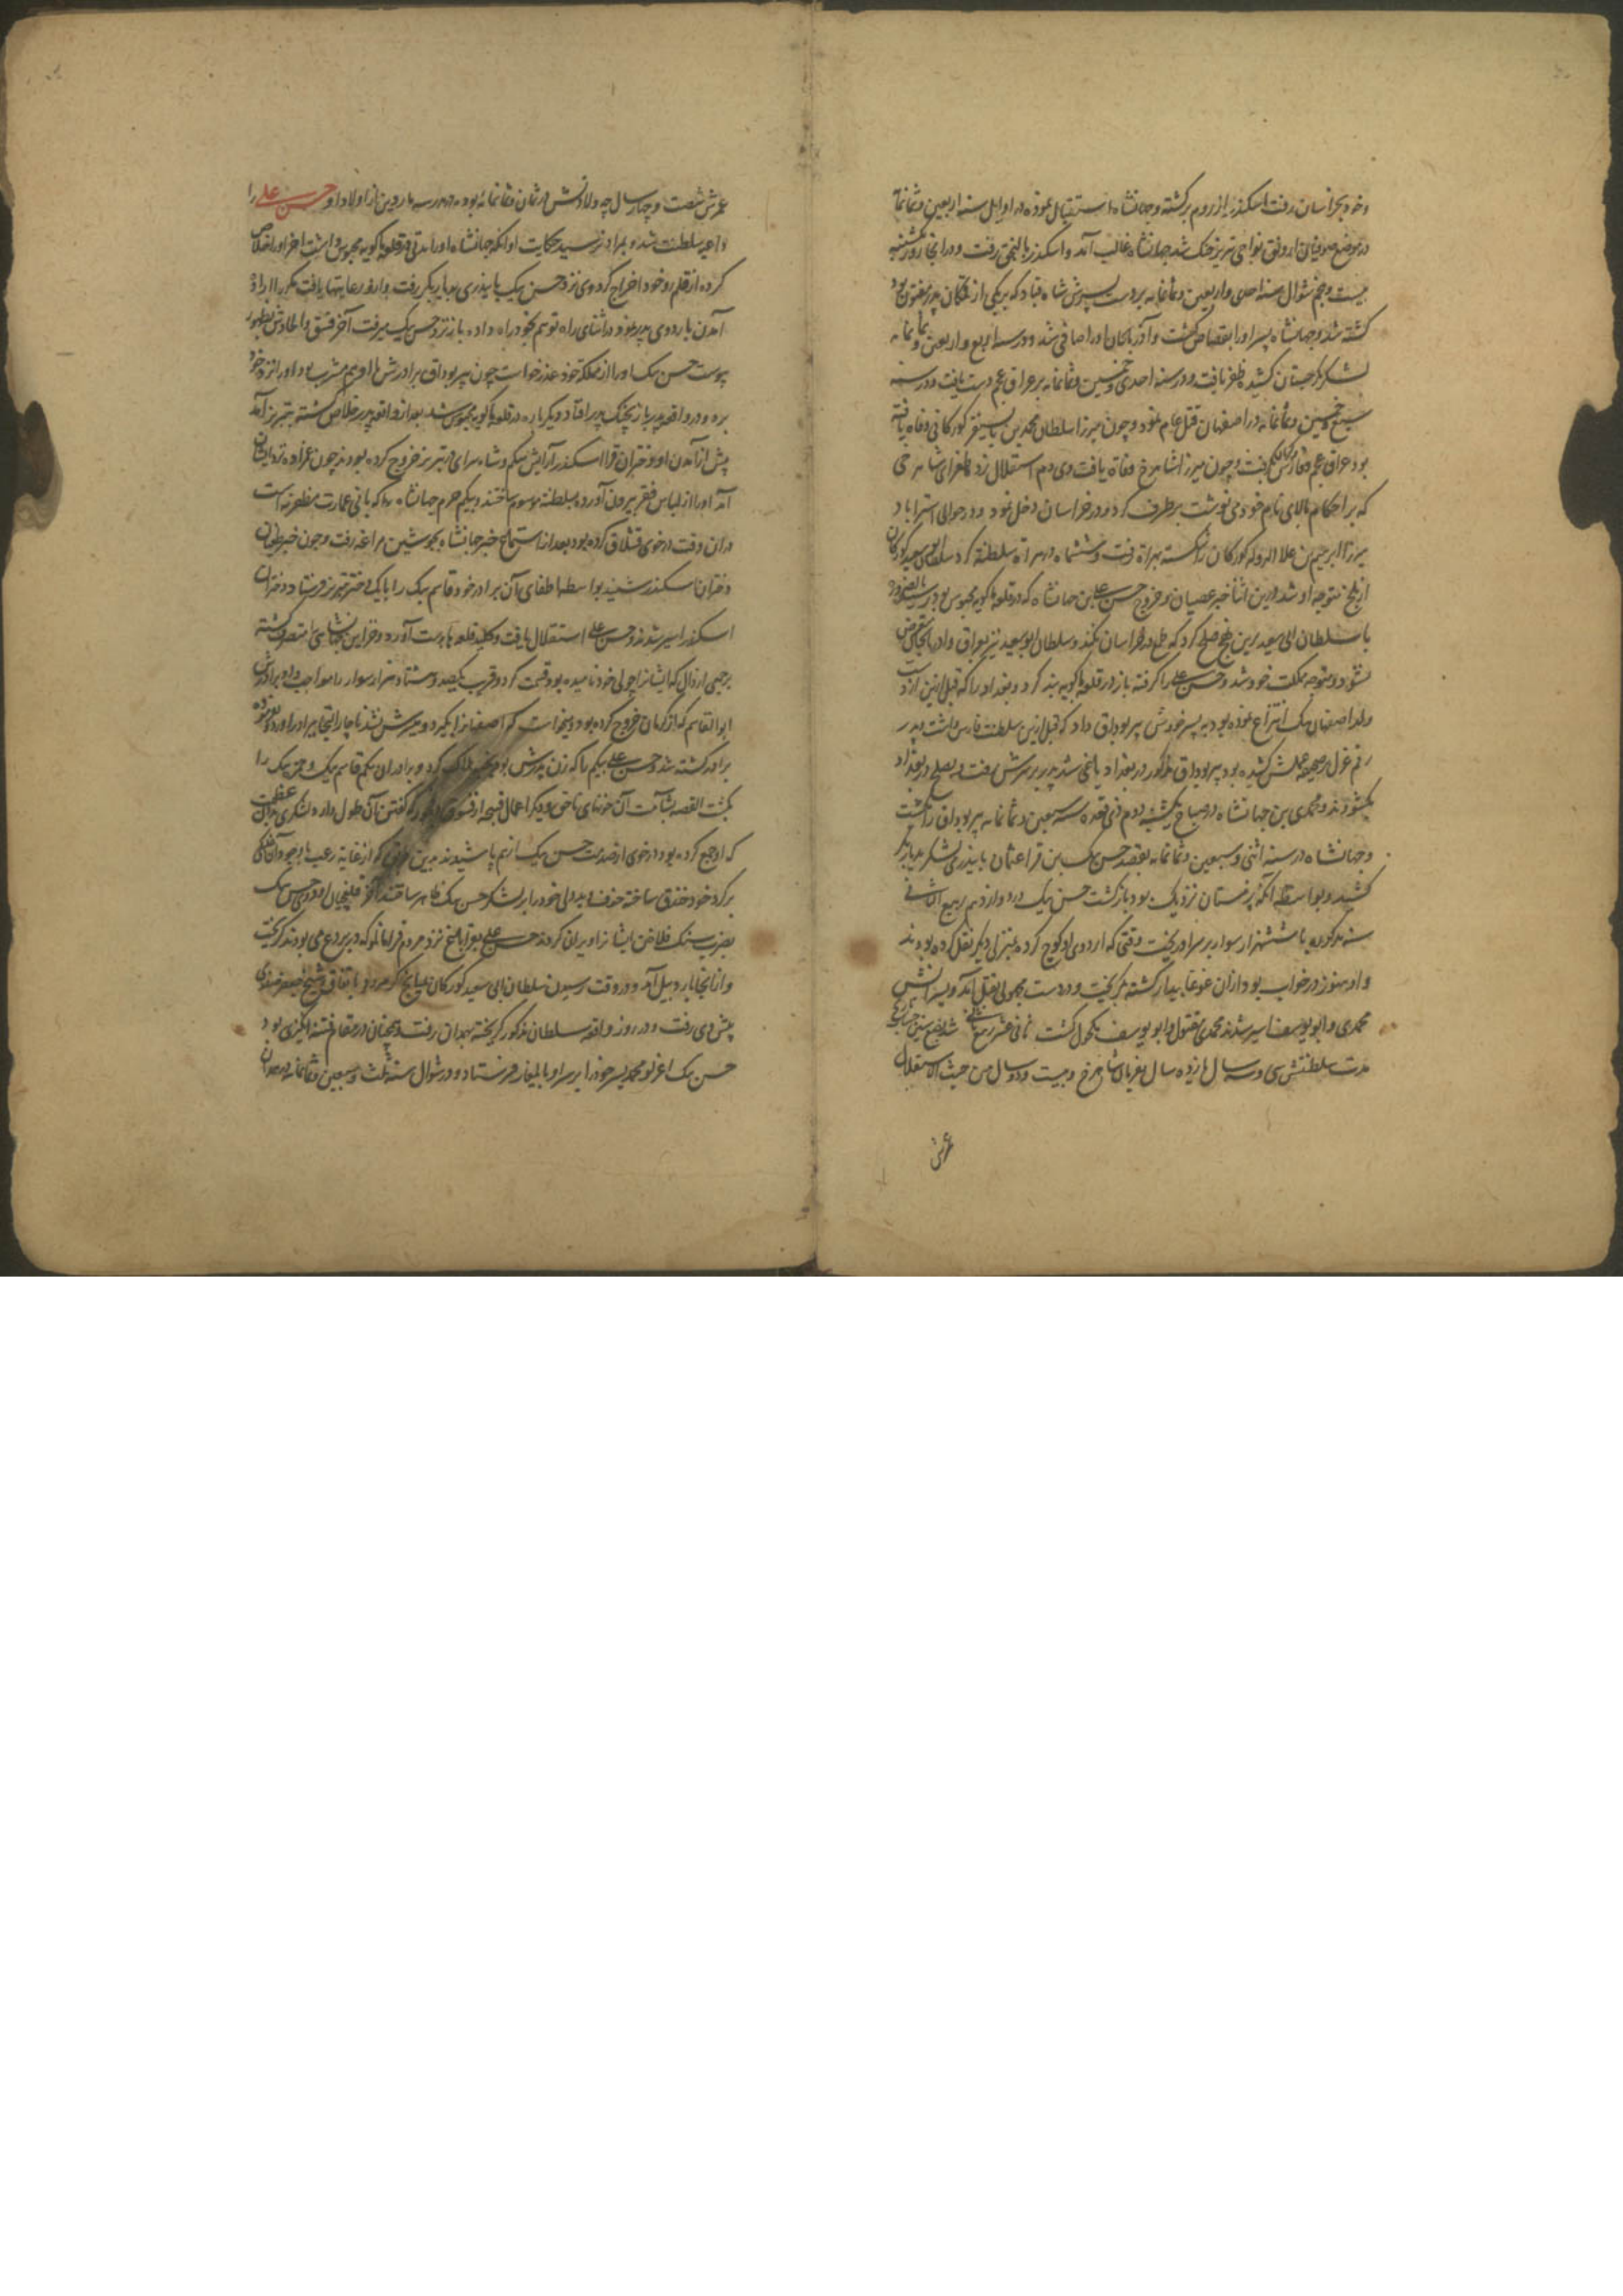 و خود بخراسان رفت اسکندر از روم برگشته و جهانشاه استقبال نموده در اوایل سنه اربعین و ثمانمایه
در موضع صوفیان ارونق نواحی تبریز جنک شد جهانشاه غالب آمد و اسکندر بالنجق رفت و در انجا روز شنبه
بیست و پنجم شوال سنه احدی و اربعین و ثمانمایه بر دست پسرش شاه قباد که بر یکی از متکان پدر مفتون بود
کشته شد و جهانشاه پسر او را بقصاص کشت و آذربایجان او را صافی شد و در سنه اربع و اربعین و ثمانمایه
لشکر بگرجستان کشید ظفر یافت و در سنه احدی و خمسین و ثمانمایه بر عراق عجم دست یافت و در سنه
سبع و خمسین و ثمانمایه در اصفهان قتل عام نمود و چون میرزا سلطان محمد بن بایسنقر کورکانی وفاه یافته
بود عراق عجم و فارس و کرمان گرفت و چون میرزا شاهرخ وفاة یافت وی دم استقلال زد طغرای شاهرخی
که بر احکام بالای نام خود می نوشت بر طرف کرد و در خراسان دخل نمود و در حوالی استراباد
میرزا ابراهیم بن علاء الدوله کورکان را شکسته بهراة رفت و ششماه در هراة سلطنة کرد سلطان ابو سعید کورکان
از بلخ متوجه او شد درین اثنا خبر عصیان و خروج حسن علی بن جهانشاه که در قلعه ماکویه محبوس بود رسید بالضرورة
با سلطان ابی سعید برین نهج صلح کرد که طمع در خراسان نکند و سلطان ابو سعید نیز بعراق و اذربایجان متعرض
نشود و متوجه مملکت خود شد و حسن علی را گرفته باز در قلعه ماکویه بند کرد و بغداد را که قبل ازین از دست
ولد اصفهان بیک انتزاع نموده بود به پسر خودش پیر بوداق داد که قبل ازین سلطنت فارس داشت و پدر
رقم عزل بر صحیفه عملش کشیده بود پیر بوداق مذکور در بغداد یاغی شد پدر بر سرش رفت و بصلح در بغداد
بگشودند و محمدی بن جهانشاه در صباح یکشنبه دوم ذی قعده سنه سبعین و ثمانمایه پیر بوداق را بکشت
و جهانشاه در سنه اثنی و سبعین و ثمانمایه بقصد حسن بیک بن قرا عثمان بایندری لشکر بدیاربکر
کشید و بواسطه آنکه زمستان نزدیک بود بازگشت حسن بیک در دوازدهم ربیع الثانی
سنه مذکوره با ششهزار سوار بر سر او ریخت وقتی که اردوی او کوچ کرده بمنزلی دیگر نقل کرده بودند
و او هنوز در خواب بود از ان غوغا بیدار کشته بگریخت و در دست مجهولی بقتل آمد و پسرانش
محمدی و ابو یوسف اسیر شدند محمدی مقتول و ابو یوسف مکحول گشت ثانی عشر ربیع ثانی
مدت سلطنتش سی و سه سال یازده سال بفرمان شاهرخ و بیست و دو سال من حیث الاستقلال
عمرش
عمرش شصت و چهار سال چه ولادتش در ثمان و ثمانمایه بوده در مدرسه ماردین از اولاد او حسن علی را
داعیه سلطنت شد و بمراد نرسید حکایت او آنکه جهانشاه او را مدتی در قلعه ماکویه محبوس داشت اخر او را خلاص
کرده از قلمرو خود اخراج کرد وی نزد حسن بیک بایندری بدیاربکر رفت و از او رعایتها یافت مکرر اراده
آمدن باردوی پدر نمود در اثنای راه توهم بخود راه داده باز نزد حسن بیک میرفت آخر فسق و الحادش بظهور
پیوست حسن بیک او را از مملکة خود عذر خواست چون پیر بوداق برادرش با او هم مشرب بود او را نزد خود
برد و در واقعه پدر باز بچنک پدر افتاد دیگر باره در قلعه ماکویه محبوس شد بعد از واقعه پدر خلاص گشته بتبریز آمد
پیش از آمدن او دختران قرا اسکندر آرایش بیکم و شاه سرای در تبریز خروج کرده بودند چون عمزاده نزد ایشان
آمد او را از لباس فقر بیرون آورده بسلطنة موسوم ساختند و بیکم حرم جهانشاه که بانی عمارت مظفریه است
در ان وقت در خوی قشلاق کرده بود بعد از استماع خبر جهانشاه بجوشین مراغه رفت و چون خبر طغیان
دختران اسکندر شنید بواسطه اطفای آن برادر خود قاسم بیک را با یک دختر بتبریز فرستاد دختران
اسکندر اسیر شدند و حسن علی استقلال یافت و کلید قلعه ها بدست آورد و خزاین جهانشاهی را متصرف گشته
بر جمعی اراذل که ایشانرا چولی خود نامیده بود قسمت کرد و قرب یکصد و هشتاد هزار سوار را مواجب داد برادرش
ابو القاسم که از کرمان خروج کرده بود و میخواست که اصفهانرا بگیرد و میسرش نشد ناچار التجا ببرادر آورد و بفرموده
برادر کشته شد و حسن علی بیکم را که زن پدرش بود هلاک کرد و برادران بیکم قاسم بیک و حمزه بیک را
بکشت القصه بشآمت آن خونهای ناحق و دیگر اعمال قبیحه از فسوق که گفتن آن طول دارد لشکری بدان عظمت
که او جمع کرده بود در خوی از صدمت حسن بیک از هم پاشیدند بدین طریق که از غایة رعب با وجود آن لشکر
بر گرد خود خندق ساخته خوف و بیدلی خود را بر لشکر حسن بیک ظاهر ساختند آخر قلیچیان اردوی حسن بیک
بضرب سنک فلاخن ایشانرا ویران کردند حسن علی بقراباغ نزد مردم قرامانلو که در بردع می بودند گریخت
و از انجا باردبیل آمد و در وقت رسیدن سلطان ابی سعید کورکان بمیانج گرمرود باتفاق شیخ جعفر صفوی
پیش وی رفت و در روز واقعه سلطان مذکور گریخته بهمدان رفت و همچنان در مقام فتنه انگیزی بود
حسن بیک اغرلو محمد پسر خود را بر سر او بایلغار فرستاد و در شوال سنه ثلث و سبعین و ثمانمایه در همدان